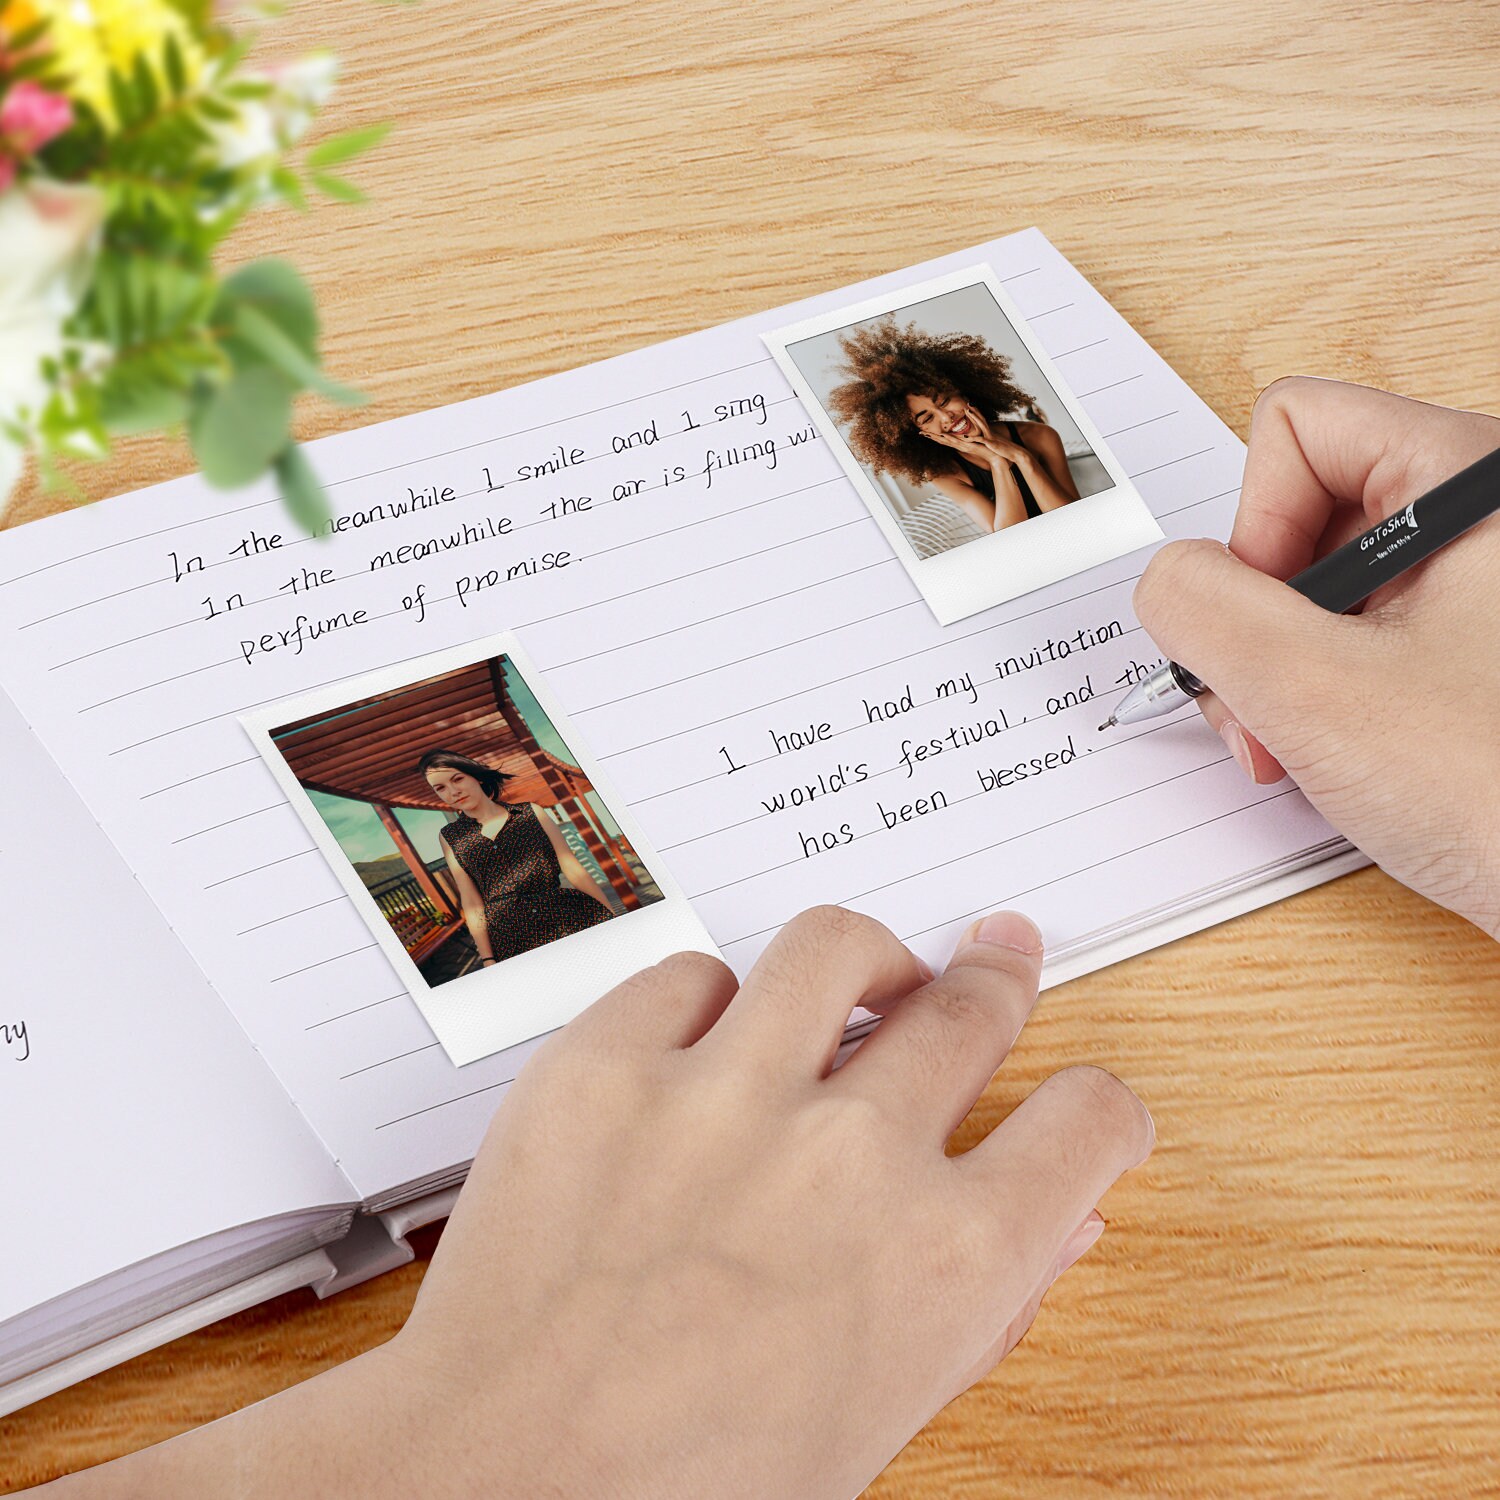 In the meanwhile I smile and I sing
in the meanwhile the air is filling wi
perfume of promise.
I have had my invitation
world's festival, and thu
has been blessed.
GoToShop
New Life Style
ny